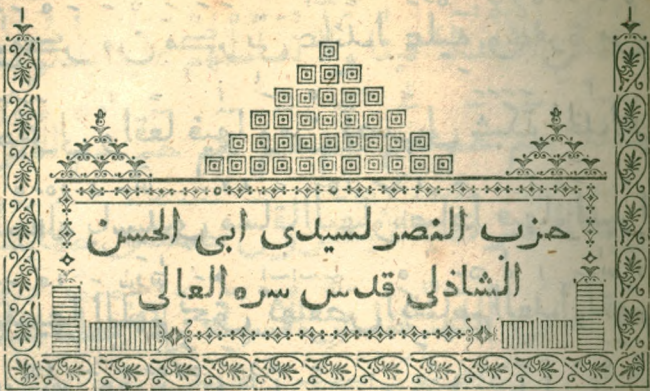 حزب النصر لسيدى ابى الحسن
الشاذلى قدس سره العالى